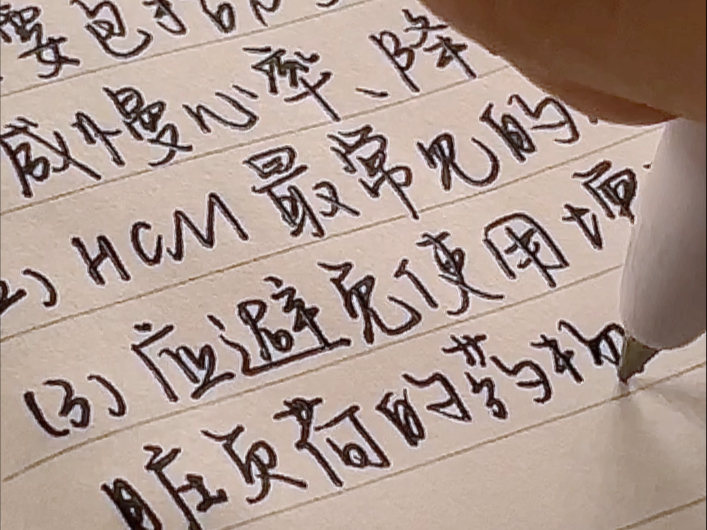 要包括
减慢心率、降
2) HCM最常见的
(3) 应避免使用增
脏负荷的药物